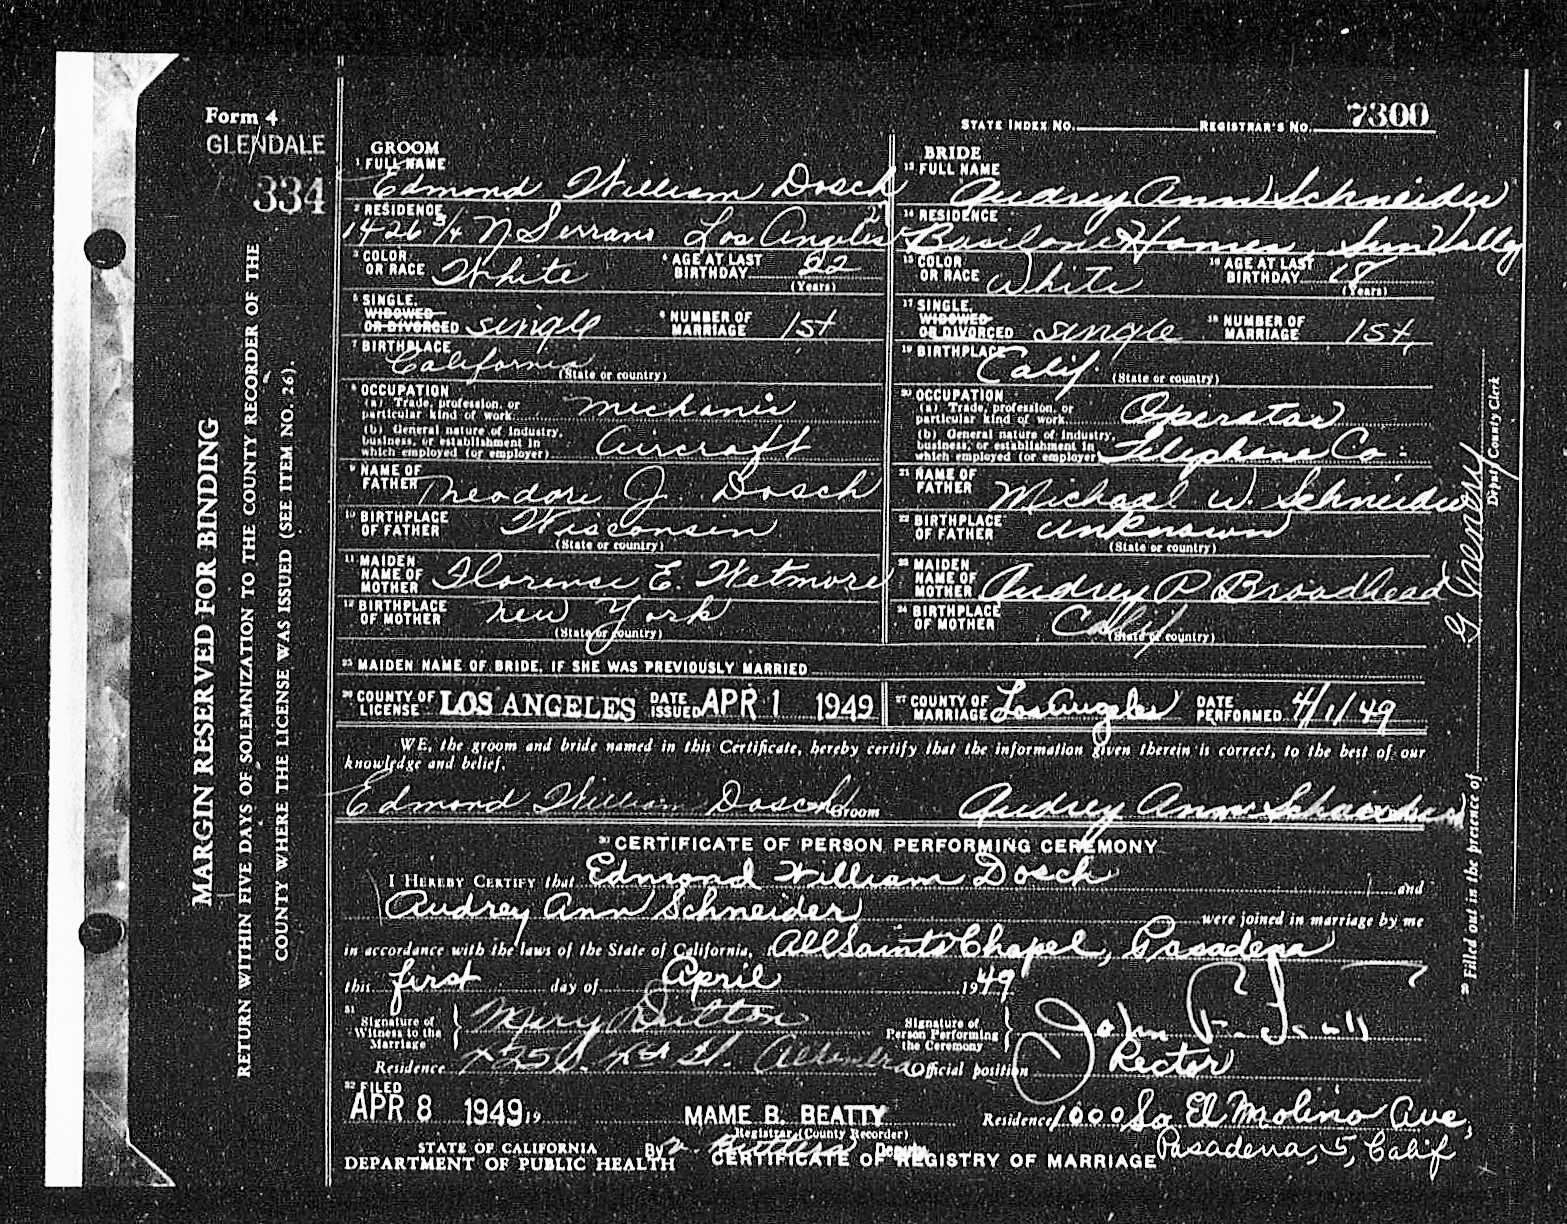 Form 4
GLENDALE
334
STATE INDEX NO. REGISTRAR'S NO. 7300
MARGIN RESERVED FOR BINDING
RETURN WITHIN FIVE DAYS OF SOLEMNIZATION TO THE COUNTY RECORDER OF THE
COUNTY WHERE THE LICENSE WAS ISSUED (SEE ITEM NO. 26).
GROOM
1 FULL NAME Edmond William Dosch
2 RESIDENCE 1426 3/4 N Serrano Los Angeles 27
3 COLOR OR RACE White 4 AGE AT LAST BIRTHDAY 22 (Years)
5 SINGLE, WIDOWED OR DIVORCED single 6 NUMBER OF MARRIAGE 1st
7 BIRTHPLACE California (State or country)
8 OCCUPATION
(a) Trade, profession, or particular kind of work mechanic
(b) General nature of industry, business, or establishment in which employed (or employer) Aircraft
9 NAME OF FATHER Theodore J. Dosch
10 BIRTHPLACE OF FATHER Wisconsin (State or country)
11 MAIDEN NAME OF MOTHER Florence E. Wetmore
12 BIRTHPLACE OF MOTHER New York (State or country)
BRIDE
13 FULL NAME Audrey Ann Schneider
14 RESIDENCE Basilone Homes, Sun Valley
15 COLOR OR RACE White 16 AGE AT LAST BIRTHDAY 18 (Years)
17 SINGLE, WIDOWED OR DIVORCED single 18 NUMBER OF MARRIAGE 1st.
19 BIRTHPLACE Calif. (State or country)
20 OCCUPATION
(a) Trade, profession, or particular kind of work Operator
(b) General nature of industry, business, or establishment in which employed (or employer) Telephone Co.
21 NAME OF FATHER Michael W. Schneider
22 BIRTHPLACE OF FATHER unknown (State or country)
23 MAIDEN NAME OF MOTHER Audrey P Broadhead
24 BIRTHPLACE OF MOTHER Calif (State or country)
25 MAIDEN NAME OF BRIDE, IF SHE WAS PREVIOUSLY MARRIED
26 COUNTY OF LICENSE LOS ANGELES DATE ISSUED APR 1 1949 27 COUNTY OF MARRIAGE Los Angeles DATE PERFORMED 4/1/49
WE, the groom and bride named in this Certificate, hereby certify that the information given therein is correct, to the best of our
knowledge and belief.
Edmond William Dosch Groom Audrey Ann Schneider
29 Filled out in the presence of Deputy County Clerk
30 CERTIFICATE OF PERSON PERFORMING CEREMONY
I HEREBY CERTIFY that Edmond William Dosch and
Audrey Ann Schneider were joined in marriage by me
in accordance with the laws of the State of California, All Saints Chapel, Pasadena
this first day of April 1949
31 Signature of Witness to the Marriage Mary Dutton Signature of Person Performing the Ceremony John
Residence Official position Rector
32 FILED
APR 8 1949 19 MAME B. BEATTY Residence 1000 So El Molino Ave,
Registrar (County Recorder)
Pasadena, 5, Calif
STATE OF CALIFORNIA By Deputy
DEPARTMENT OF PUBLIC HEALTH CERTIFICATE OF REGISTRY OF MARRIAGE